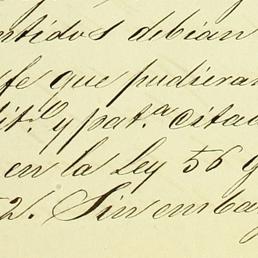 ntidos debían
efe que pudieran
dit.º y pat.ª citad
en la Ley 56 
52. Sin embar